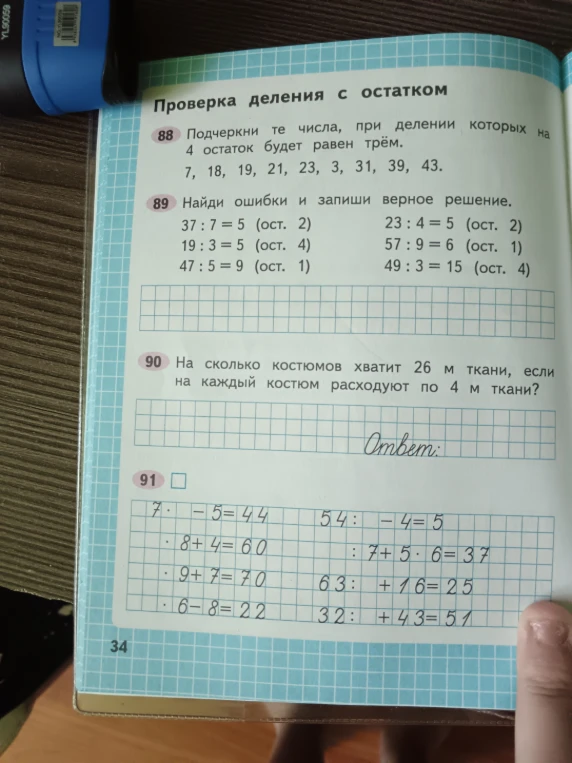 YL90059
Проверка деления с остатком
88 Подчеркни те числа, при делении которых на
4 остаток будет равен трём.
7, 18, 19, 21, 23, 3, 31, 39, 43.
89 Найди ошибки и запиши верное решение.
37 : 7 = 5 (ост. 2) 23 : 4 = 5 (ост. 2)
19 : 3 = 5 (ост. 4) 57 : 9 = 6 (ост. 1)
47 : 5 = 9 (ост. 1) 49 : 3 = 15 (ост. 4)
90 На сколько костюмов хватит 26 м ткани, если
на каждый костюм расходуют по 4 м ткани?
Ответ:
91
7 · - 5 = 44 54 : - 4 = 5
· 8 + 4 = 60 : 7 + 5 · 6 = 37
· 9 + 7 = 70 63 : + 16 = 25
· 6 - 8 = 22 32 : + 43 = 51
34